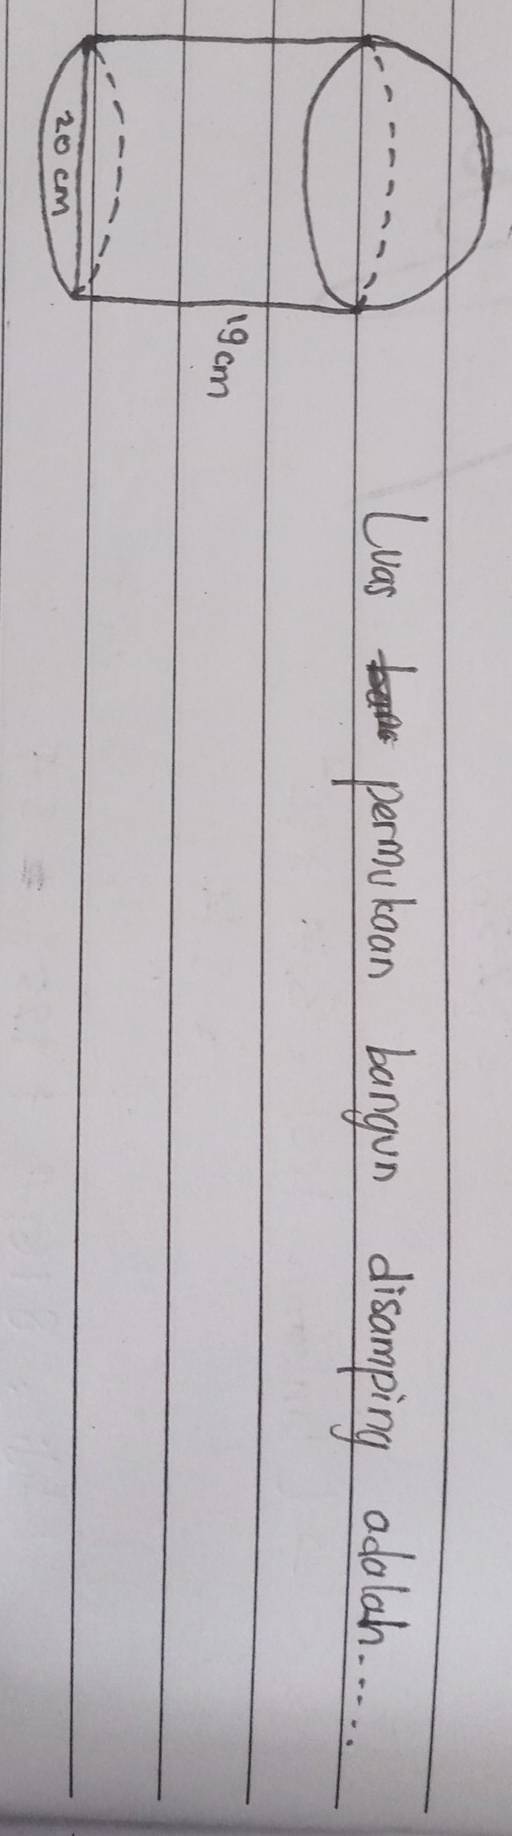 Luas permukaan bangun disamping adalah.....
19 cm
20 cm